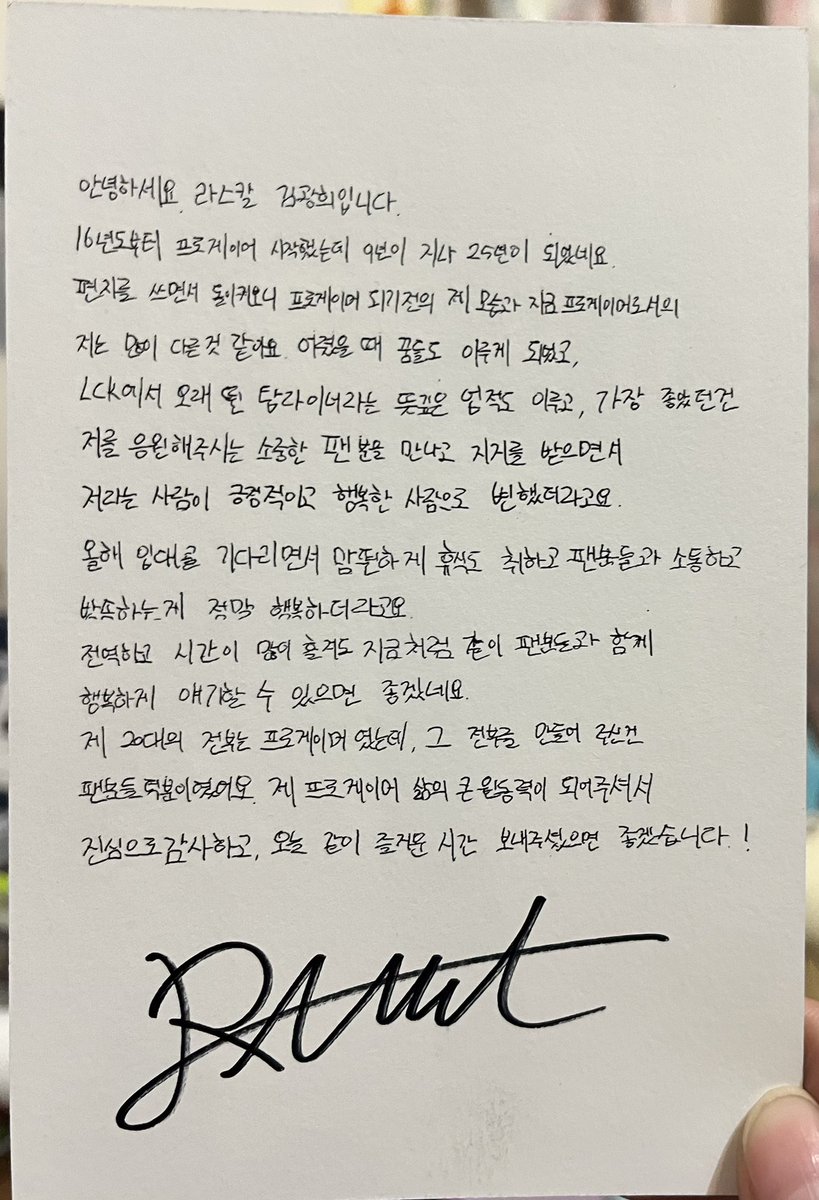 안녕하세요. 라스칼 김광희입니다.
16년도부터 프로게이머 시작했는데 9년이 지나 25년이 되었네요.
편지를 쓰면서 돌이켜보니 프로게이머 되기전의 제 모습과 지금 프로게이머로서의
저는 많이 다른것 같아요. 어렸을 때 꿈들도 이루게 되었고,
LCK에서 오래 된 탑라이너라는 뜻깊은 업적도 이루고, 가장 좋았던건
저를 응원해주시는 소중한 팬분을 만나고 지지를 받으면서
저라는 사람이 긍정적이고 행복한 사람으로 변했더라고요.
올해 입대를 기다리면서 맘편하게 휴식도 취하고 팬분들과 소통하고
방송하는게 정말 행복하더라고요.
전역하고 시간이 많이 흘러도 지금처럼 같이 팬분들과 함께
행복하게 얘기할 수 있으면 좋겠네요.
제 20대의 전부는 프로게이머 였는데, 그 전부를 만들어 주신건
팬분들 덕분이였어요. 제 프로게이머 삶의 큰 원동력이 되어주셔서
진심으로 감사하고, 오늘 같이 즐거운 시간 보내주셨으면 좋겠습니다.!